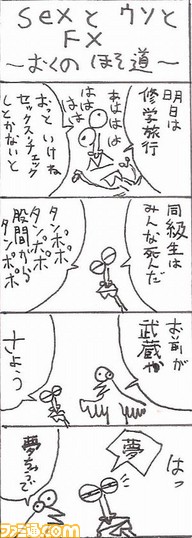 sexと ウソと
FX
～おくのほそ道～
明日は
修学旅行
あはははははは
おっと いけね
セックス・チェック
しとかないと
同級生は
みんな死んだ
タンポポ
タンポポ
股間から
タンポポ
お前が
武蔵か
さよう
はっ
夢
夢
ファミ通.com